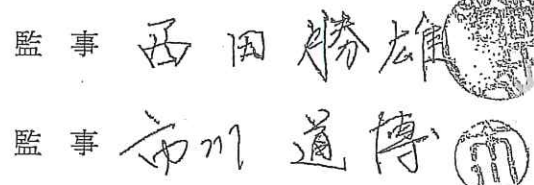 監事 西田勝雄
監事 市川道博